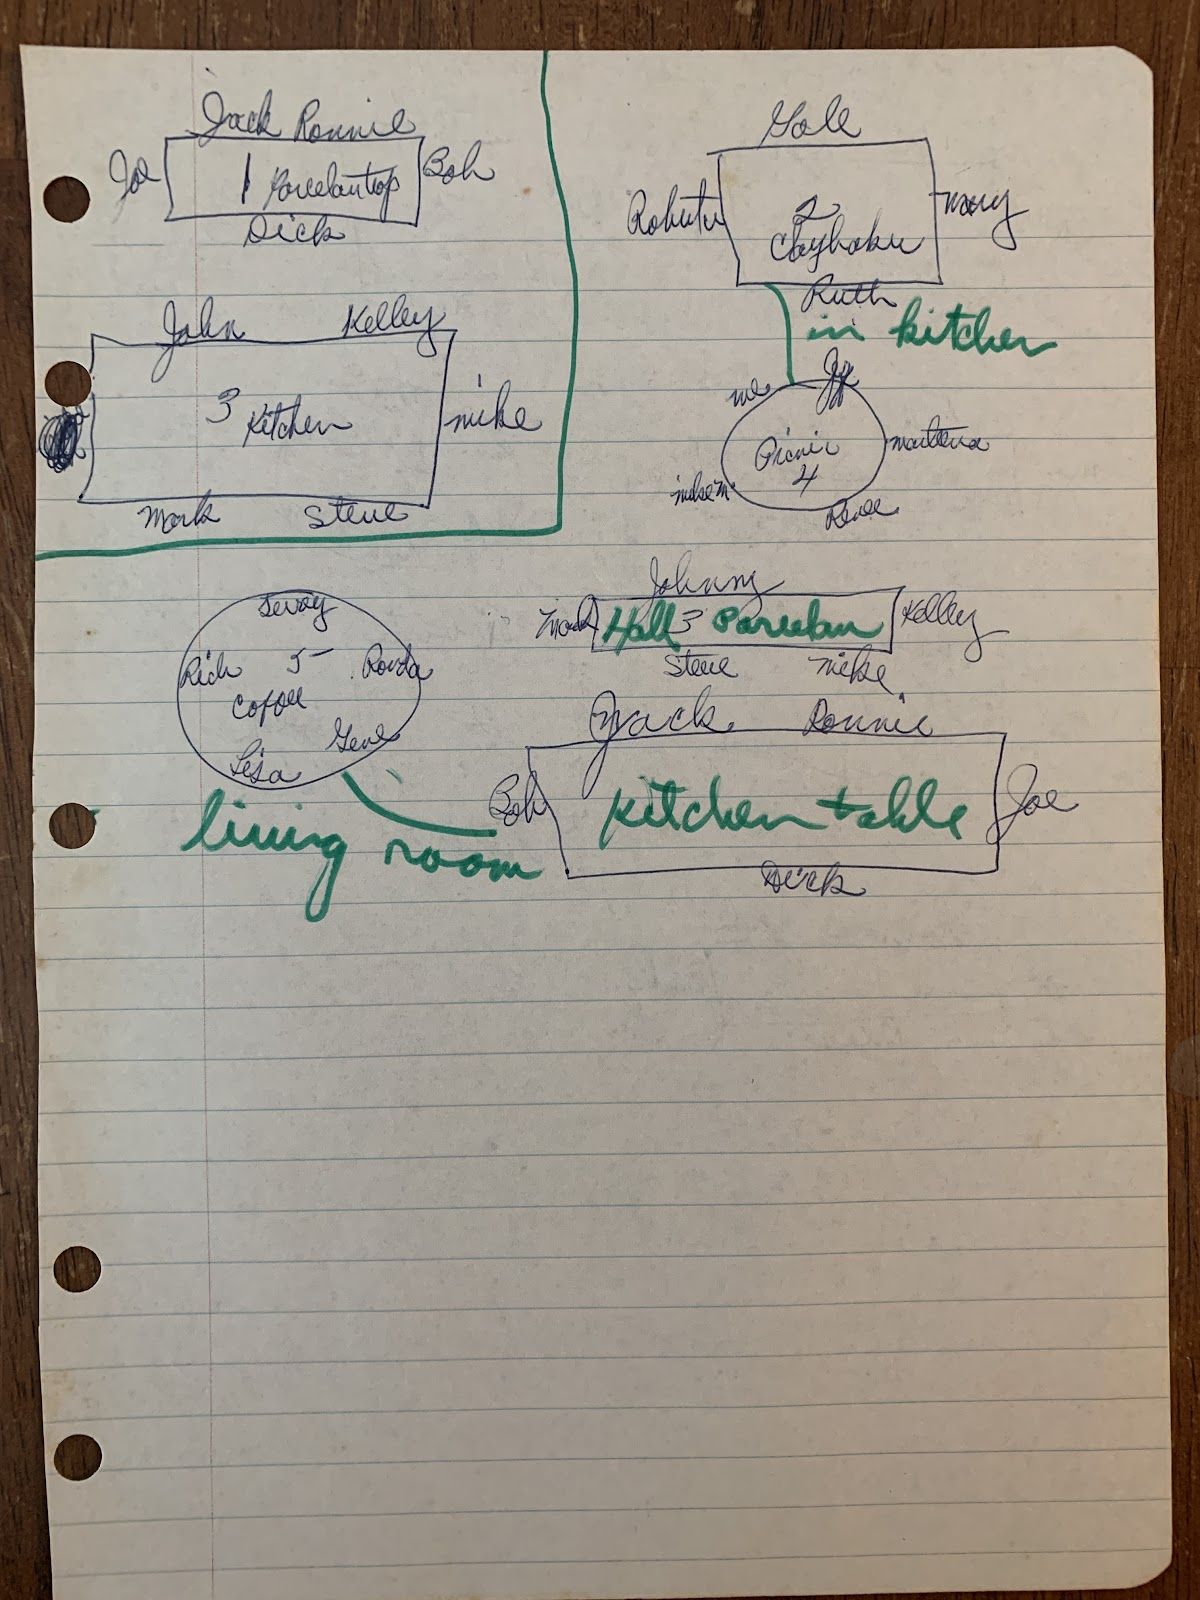 Jack Ronnie
Joe
1 Porcelantop
Bob
Dick
John Kelley
3 Kitchen
mike
Mark Steve
Gale
mary
2
Ruth
in kitchen
me Jeff
Picnic
4
mike m
Renee
5
Rich Ronda
coffee
Gene
Lisa
living room
Johnny
Mark
Hall 3 Porcelan
Kelley
Steve mike
Jack Ronnie
Bob
kitchen table
Joe
Dick